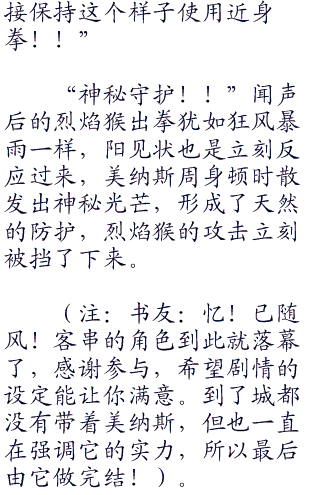 接保持这个样子使用近身
拳！！”
“神秘守护！！”闻声
后的烈焰猴出拳犹如狂风暴
雨一样，阳见状也是立刻反
应过来，美纳斯周身顿时散
发出神秘光芒，形成了天然
的防护，烈焰猴的攻击立刻
被挡了下来。
（注：书友：忆！已随
风！客串的角色到此就落幕
了，感谢参与，希望剧情的
设定能让你满意。到了城都
没有带着美纳斯，但也一直
在强调它的实力，所以最后
由它做完结！）。